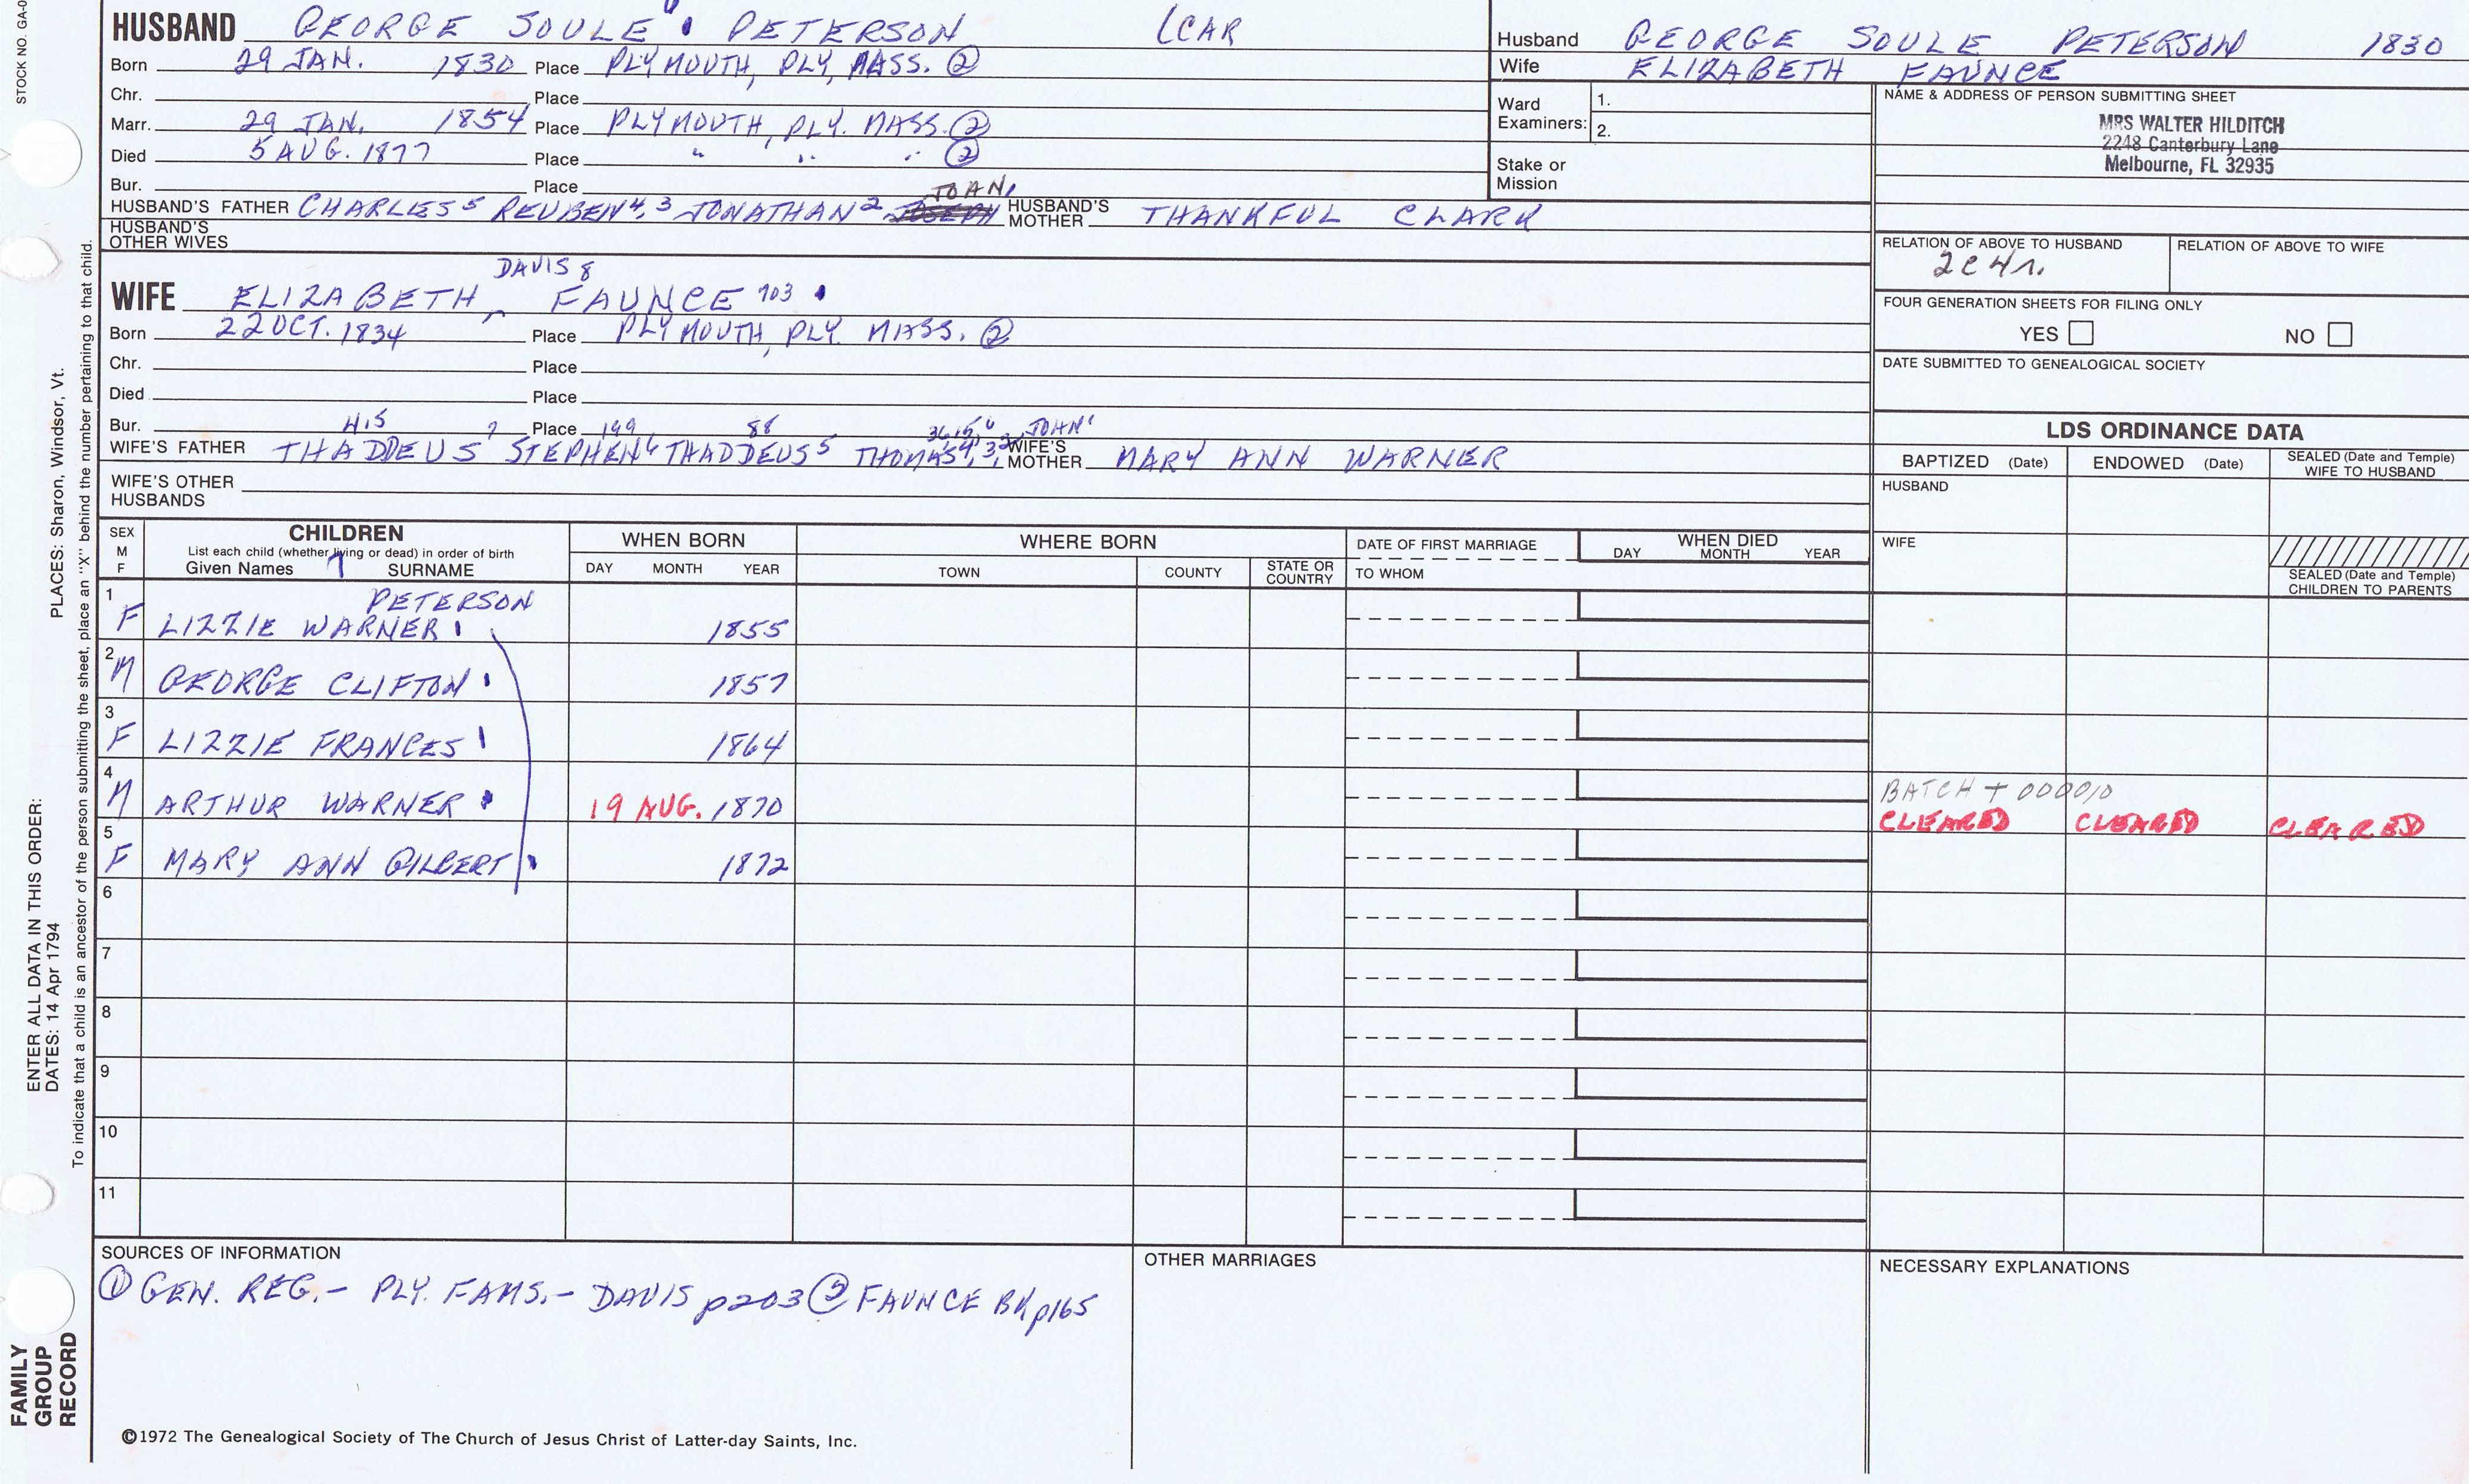 STOCK NO. GA-0
HUSBAND GEORGE SOULE PETERSON (CAR
Born 29 JAN. 1830 Place PLYMOUTH, PLY, MASS. ②
Chr. Place
Marr. 29 JAN. 1854 Place PLYMOUTH, PLY. MASS. ②
Died 5 AUG. 1877 Place " " " ②
Bur. Place
JOHN1
HUSBAND'S FATHER CHARLES5 REUBEN4,3 JONATHAN2 JOSEPH HUSBAND'S MOTHER THANKFUL CLARK
HUSBAND'S OTHER WIVES
DAVIS 8
WIFE ELIZABETH ^ FAUNCE 703
Born 22 OCT. 1834 Place PLYMOUTH, PLY. MASS. ②
Chr. Place
Died Place
Bur. 415 Place 199 88 JOHN1
WIFE'S FATHER THADDEUS7 STEPHEN6 THADDEUS5 THOMAS4,3,2 WIFE'S MOTHER MARY ANN WARNER
WIFE'S OTHER HUSBANDS
Husband GEORGE SOULE PETERSON 1830
Wife ELIZABETH FAUNCE
Ward Examiners: 1.
2.
Stake or Mission
NAME & ADDRESS OF PERSON SUBMITTING SHEET
MRS WALTER HILDITCH
2248 Canterbury Lane
Melbourne, FL 32935
RELATION OF ABOVE TO HUSBAND RELATION OF ABOVE TO WIFE
2C4r.
FOUR GENERATION SHEETS FOR FILING ONLY
YES NO
DATE SUBMITTED TO GENEALOGICAL SOCIETY
LDS ORDINANCE DATA
BAPTIZED (Date) ENDOWED (Date) SEALED (Date and Temple) WIFE TO HUSBAND
HUSBAND
WIFE
SEALED (Date and Temple) CHILDREN TO PARENTS
SEX M F
CHILDREN
List each child (whether living or dead) in order of birth
Given Names SURNAME
WHEN BORN
DAY MONTH YEAR
WHERE BORN
TOWN COUNTY STATE OR COUNTRY
DATE OF FIRST MARRIAGE
TO WHOM
WHEN DIED
DAY MONTH YEAR
PETERSON
1 F LIZZIE WARNER 1855
2 M GEORGE CLIFTON 1857
3 F LIZZIE FRANCES 1864
BATCH T 000010
4 M ARTHUR WARNER 19 AUG. 1870 CLEARED CLEARED CLEARED
5 F MARY ANN GILBERT 1872
6
7
8
9
10
11
SOURCES OF INFORMATION
① GEN. REG. - PLY. FAMS. - DAVIS p203 ② FAUNCE BK p165
OTHER MARRIAGES
NECESSARY EXPLANATIONS
©1972 The Genealogical Society of The Church of Jesus Christ of Latter-day Saints, Inc.
FAMILY GROUP RECORD
ENTER ALL DATA IN THIS ORDER:
DATES: 14 Apr 1794
PLACES: Sharon, Windsor, Vt.
To indicate that a child is an ancestor of the person submitting the sheet, place an "X" behind the number pertaining to that child.